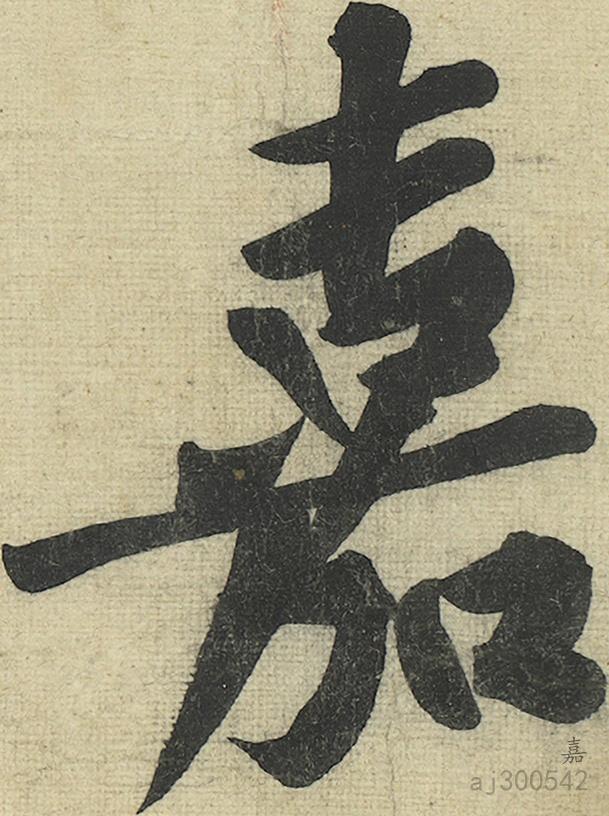 嘉
嘉
aj300542